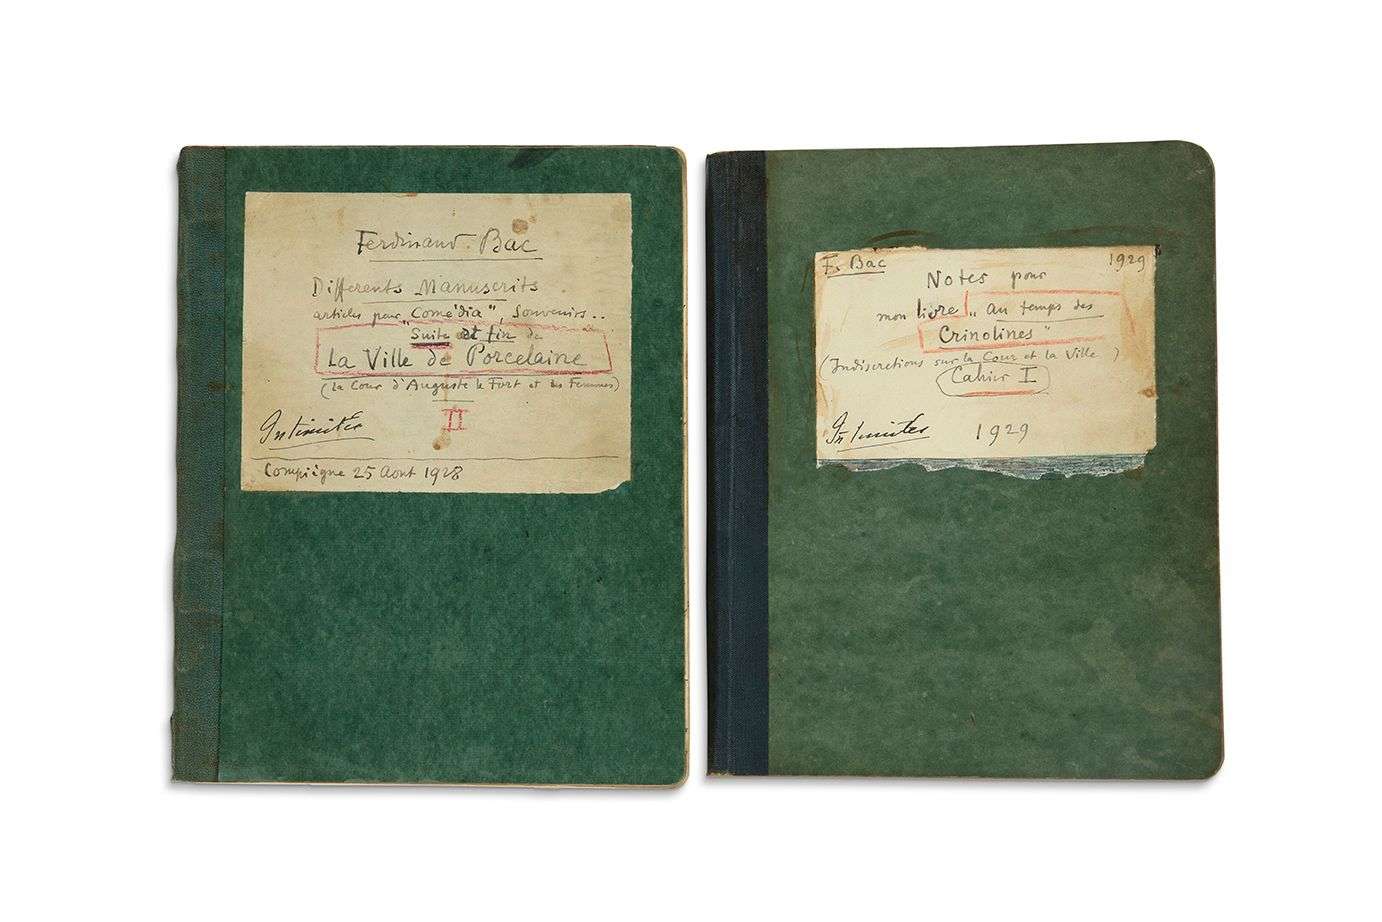 Ferdinand Bac
Différents Manuscrits
articles pour "Comédia", Souvenirs..
"Suite et fin de
La Ville de Porcelaine"
(la Cour d'Auguste le Fort et ses Femmes)
II
Intimités
Compiègne 25 Aout 1928
F. Bac 1929
Notes pour
mon livre "au temps des
Crinolines"
(Indiscretions sur la Cour et la Ville)
Cahier I
Intimités 1929